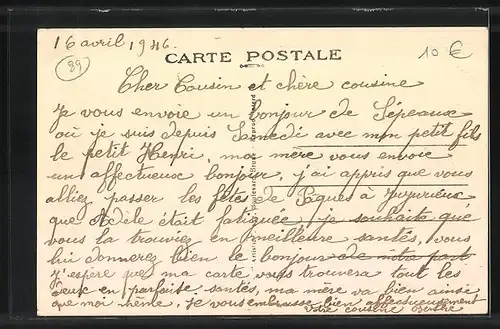 16 avril 1946.
CARTE POSTALE
89
10 €
Cher Cousin et chère cousine
Je vous envoie un bonjour de Sépeaux
où je suis depuis Samedi avec mon petit fils
le petit Henri, ma mère vous envoie
un affectueux bonjour, j'ai appris que vous
alliez passer les fêtes de Pâques à
que Adèle était fatiguée, je souhaite que
vous la trouviez en meilleure santés, vous
lui donnerez bien le bonjour de notre part
J'espère que ma carte vous trouvera tout les
deux en parfaite santés, ma mère va bien ainsi
que moi même, je vous embrasse bien affectueusement
votre cousine Berthe